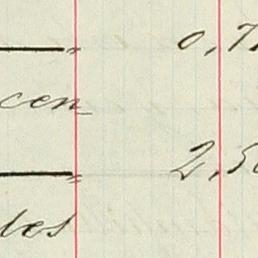 — „ 0,7
cen
— „ 2,5
des